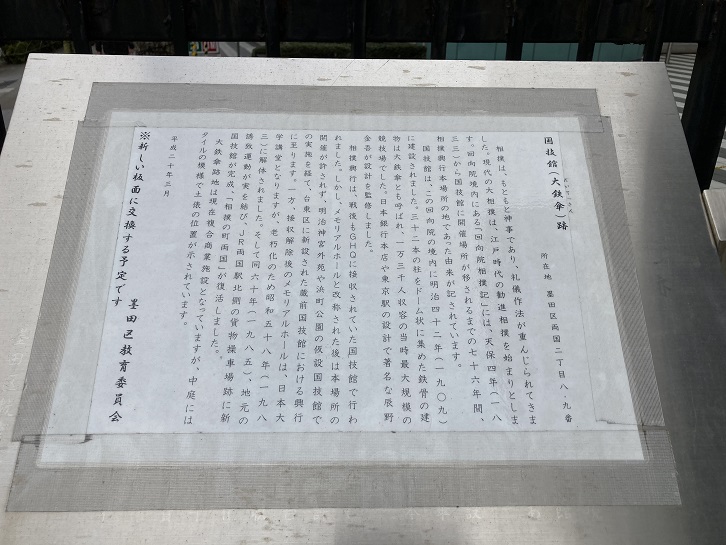 国技館(大鉄傘)跡
所在地 墨田区両国二丁目八・九番
相撲は、もともと神事であり、礼儀作法が重んじられてきま
した。現代の大相撲は、江戸時代の勧進相撲を始まりとしま
す。回向院境内にある「回向院相撲記」には、天保四年(一八
三三)から国技館に開催場所が移されるまでの七十六年間、
相撲興行本場所の地であった由来が記されています。
国技館は、この回向院の境内に明治四十二年(一九〇九)
に建設されました。三十二本の柱をドーム状に集めた鉄骨の建
物は大鉄傘とも呼ばれ、一万三千人収容の当時最大規模の
競技場でした。日本銀行本店や東京駅の設計で著名な辰野
金吾が設計を監修しました。
相撲興行は、戦後もGHQに接収されていた国技館で行わ
れました。しかし、メモリアルホールと改称された後は本場所の
開催が許されず、明治神宮外苑や浜町公園の仮設国技館で
の実施を経て、台東区に新設された蔵前国技館における興行
に至ります。一方、接収解除後のメモリアルホールは、日本大
学講堂となりますが、老朽化のため昭和五十八年(一九八
三)に解体されました。そして同六十年(一九八五)、地元の
誘致運動が実を結び、JR両国駅北側の貨物操車場跡に新
国技館が完成、「相撲の町両国」が復活しました。
大鉄傘跡地は現在複合商業施設となっていますが、中庭には
タイルの模様で土俵の位置が示されています。
平成二十年三月
墨田区教育委員会
※新しい板面に交換する予定です